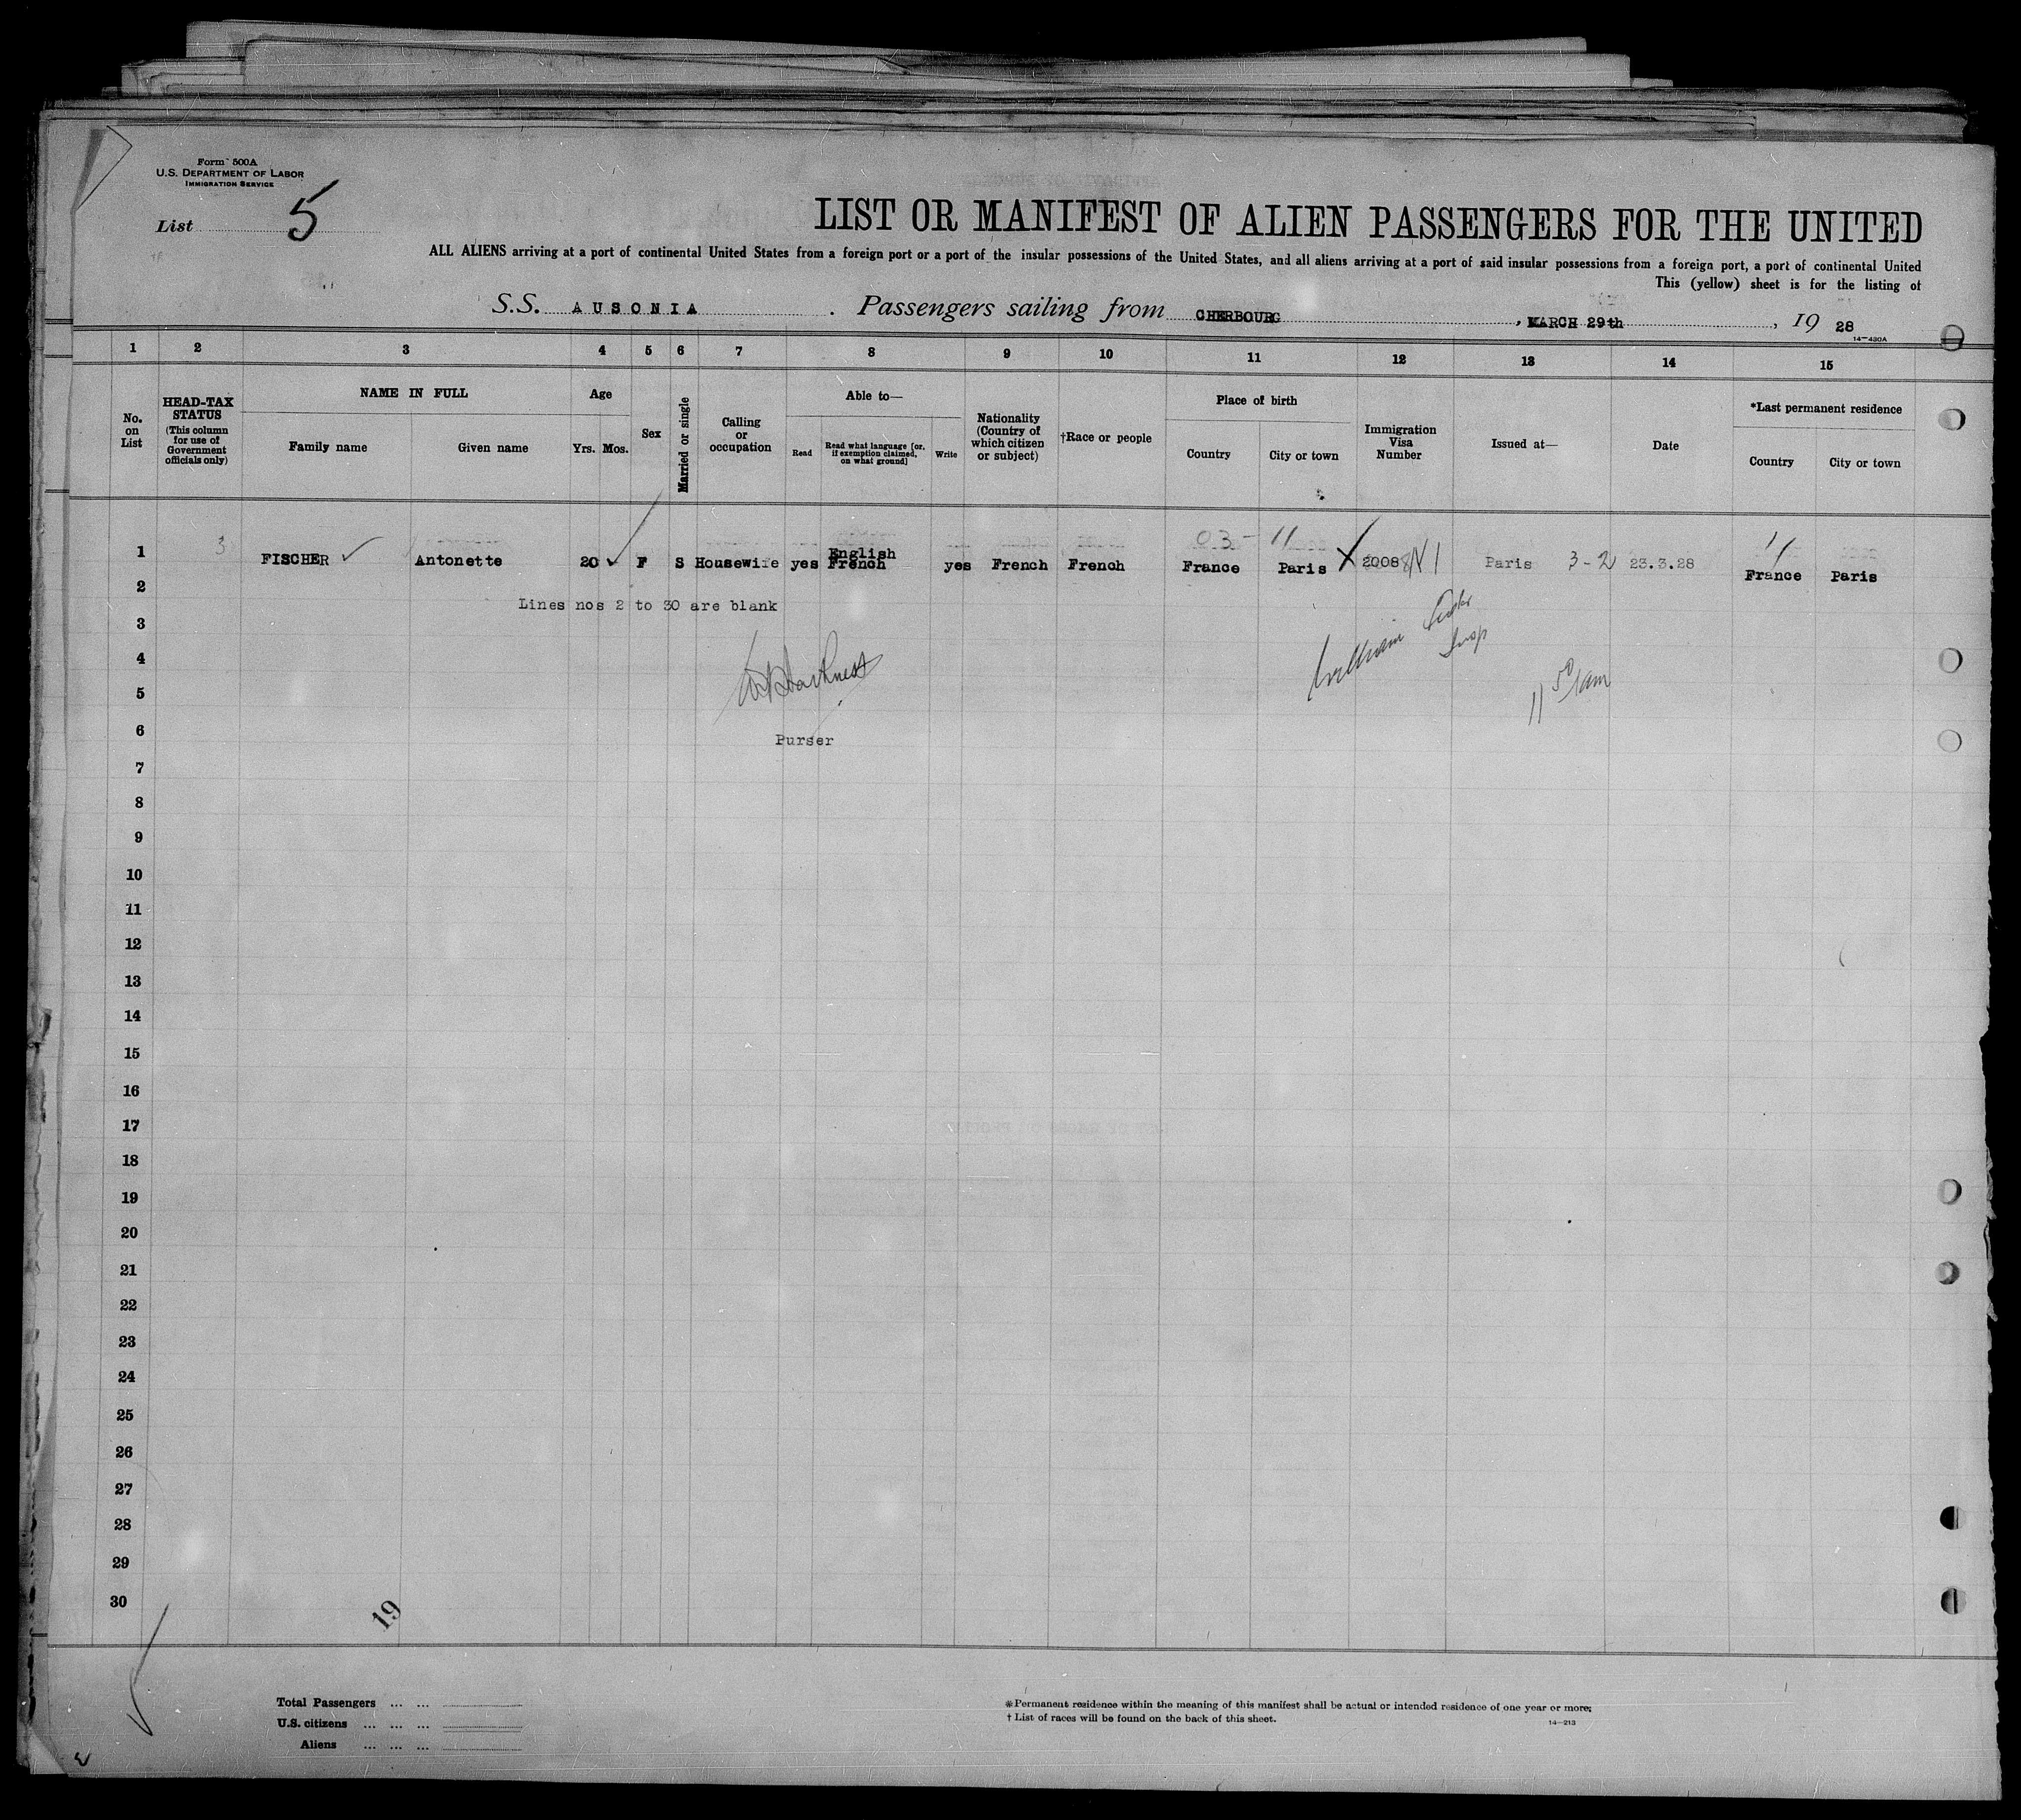 Form 500A
U.S. DEPARTMENT OF LABOR
IMMIGRATION SERVICE
List 5
LIST OR MANIFEST OF ALIEN PASSENGERS FOR THE UNITED
ALL ALIENS arriving at a port of continental United States from a foreign port or a port of the insular possessions of the United States, and all aliens arriving at a port of said insular possessions from a foreign port, a port of continental United
This (yellow) sheet is for the listing of
S.S. AUSONIA . Passengers sailing from CHERBOURG , MARCH 29th , 19 28
14—430A
1 2 3 4 5 6 7 8 9 10 11 12 13 14 15
No. on List
HEAD-TAX STATUS (This column for use of Government officials only)
NAME IN FULL
Family name Given name
Age
Yrs. Mos.
Sex
Married or single
Calling or occupation
Able to—
Read Read what language [or, if exemption claimed, on what ground] Write
Nationality (Country of which citizen or subject)
†Race or people
Place of birth
Country City or town
Immigration Visa Number
Issued at—
Date
*Last permanent residence
Country City or town
03- 11 11
1 3 FISCHER ✓ Antonette 20 ✓ F S Housewife yes English French yes French French France Paris X 2008 Paris 3-2 23.3.28 France Paris
2
Lines nos 2 to 30 are blank
3
4
William
Insp
5
11 50 am
6
Purser
7
8
9
10
11
12
13
14
15
16
17
18
19
20
21
22
23
24
25
26
27
28
29
30
19
Total Passengers ... ...
U.S. citizens ... ... ...
Aliens ... ... ...
*Permanent residence within the meaning of this manifest shall be actual or intended residence of one year or more.
† List of races will be found on the back of this sheet.
14—213